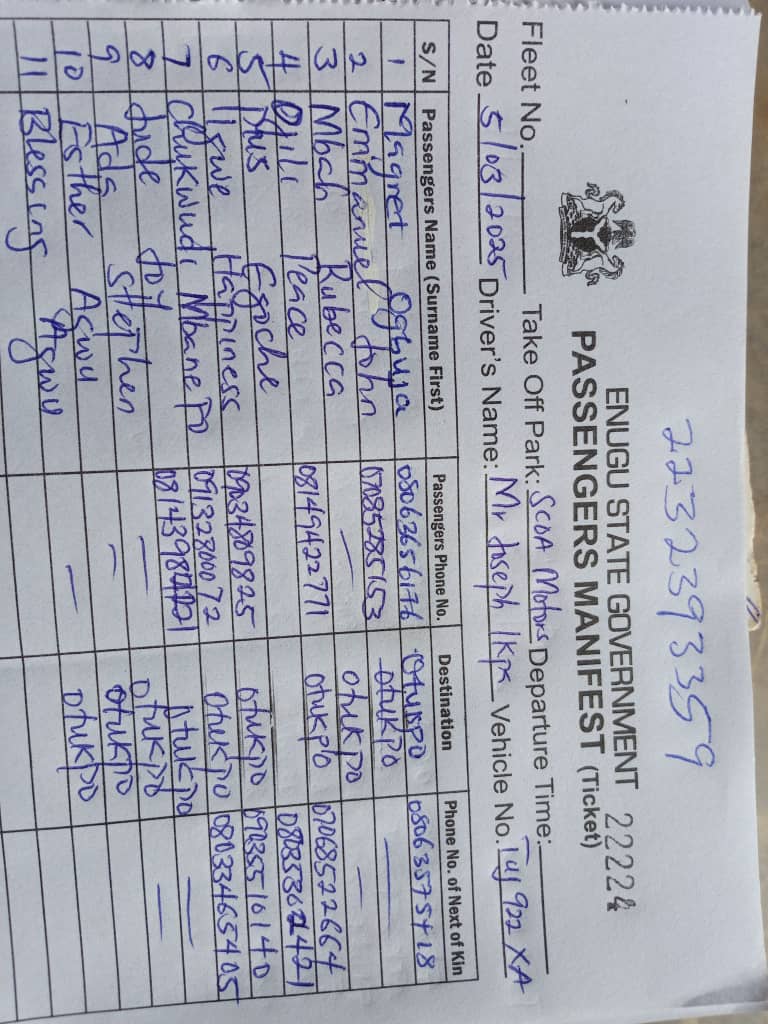 2232393359
ENUGU STATE GOVERNMENT 22224
PASSENGERS MANIFEST (Ticket)
Fleet No. Take Off Park: SCOA Motors Departure Time:
Date 5/03/2025 Driver's Name: Mr Joseph Vehicle No. 922 XA
S/N Passengers Name (Surname First) Passengers Phone No. Destination Phone No. of Next of Kin
1 Magret Ogbuja 08063656176 Otukpo 08063575418
2 Emmanuel John 07085285153 otukpo —
3 Mbah Rubecca — otukpo —
4 Orili Peace 08149422771 otukpo 07068522664
5 Pius Egoche
6 Happiness 09034809825 otukpo 09035510140
7 Chukwudi Mbanefo 09132800072 otukpo 08033465405
8 Jude Joy otukpo —
9 Ada Stephen — otukpo —
10 Esther Agwu — otukpo
11 Blessing Agwu — otukpo